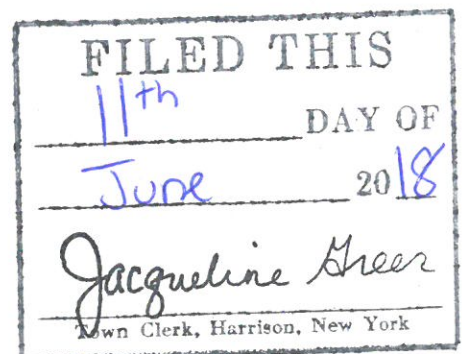 FILED THIS
11th DAY OF
June 2018
Jacqueline Greer
Town Clerk, Harrison, New York